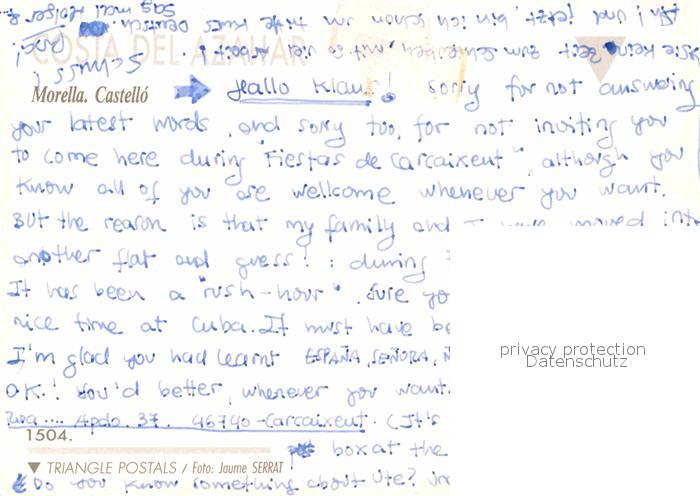 COSTA DEL AZAHAR
Morella. Castelló
Hallo Klaus! Sorry for not answering
your latest words, and sorry too, for not inviting you
to come here during "Fiestas de Carcaixent", although you
know all of you are wellcome whenever you want.
But the reason is that my family and I have moved into
another flat and guess! : during
It has been a "rush-hour". Sure yo
nice time at Cuba. It must have be
I'm glad you had learnt ESPAÑA, SEÑORA, Ñ
OK! You'd better, whenever you want.
Apdo. 37. 46740 - Carcaixent. (It's
box at the
1504.
▼ TRIANGLE POSTALS / Foto: Jaume SERRAT
Do you know something about Ute?
keine Zeit zum schreiben, mit so viel Arbeit!
und jetzt, bin ich schon im dritte Kurs Deutsch.
Sag mal Holger
Schuss!
privacy protection
Datenschutz